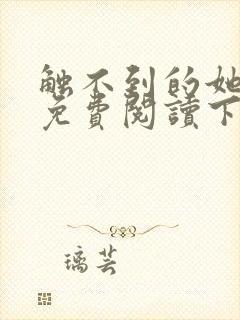 触不到的她
免費閱讀下
璃芸